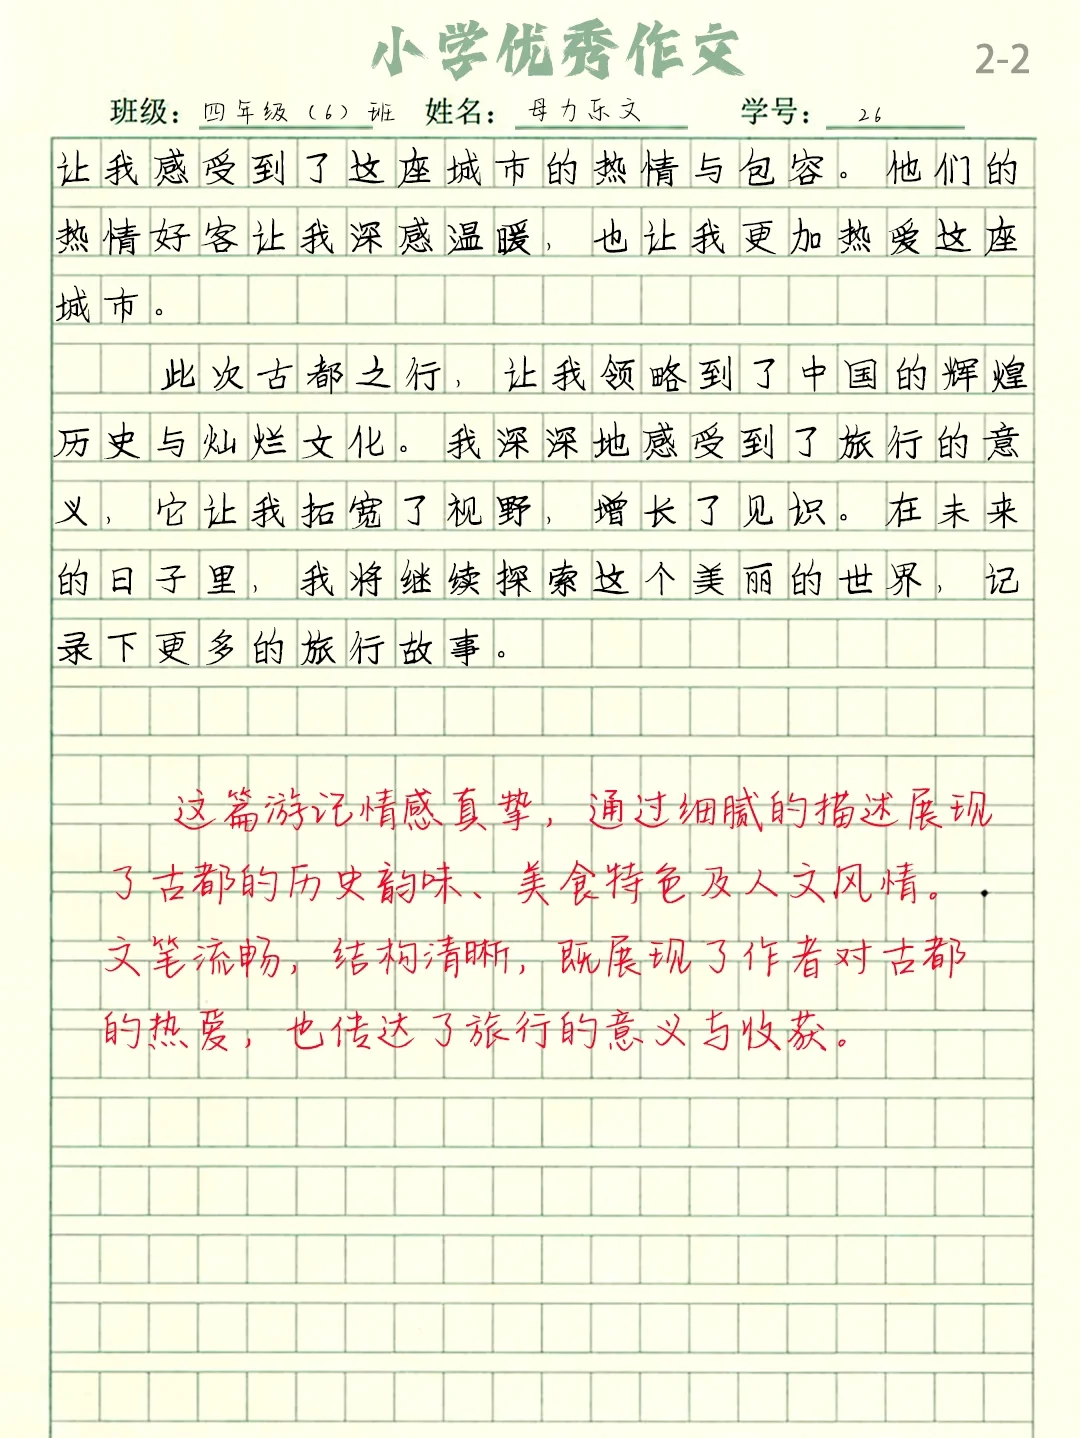 小学优秀作文
2-2
班级：四年级（6）班 姓名：母力乐文 学号：26
让我感受到了这座城市的热情与包容。他们的
热情好客让我深感温暖，也让我更加热爱这座
城市。
此次古都之行，让我领略到了中国的辉煌
历史与灿烂文化。我深深地感受到了旅行的意
义，它让我拓宽了视野，增长了见识。在未来
的日子里，我将继续探索这个美丽的世界，记
录下更多的旅行故事。
这篇游记情感真挚，通过细腻的描述展现
了古都的历史韵味、美食特色及人文风情。
文笔流畅，结构清晰，既展现了作者对古都
的热爱，也传达了旅行的意义与收获。